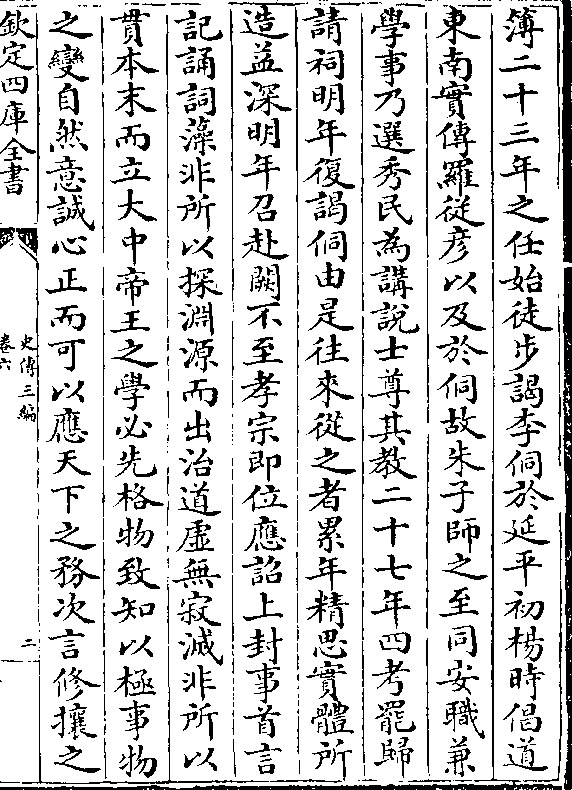 簿二十三年之任始徒步謁李侗於延平初楊時倡道
東南實傳羅從彦以及於侗故朱子師之至同安職兼
學事乃選秀民為講說士尊其教二十七年四考罷歸
請祠明年復謁侗由是往來從之者累年精思實體所
造益深明年召赴闕不至孝宗即位應詔上封事首言
記誦詞藻非所以探淵源而出治道虚無寂滅非所以
貫本末而立大中帝王之學必先格物致知以極事物
之變自然意誠心正而可以應天下之務次言修攘之
欽定四庫全書
史傳三編
卷六
二